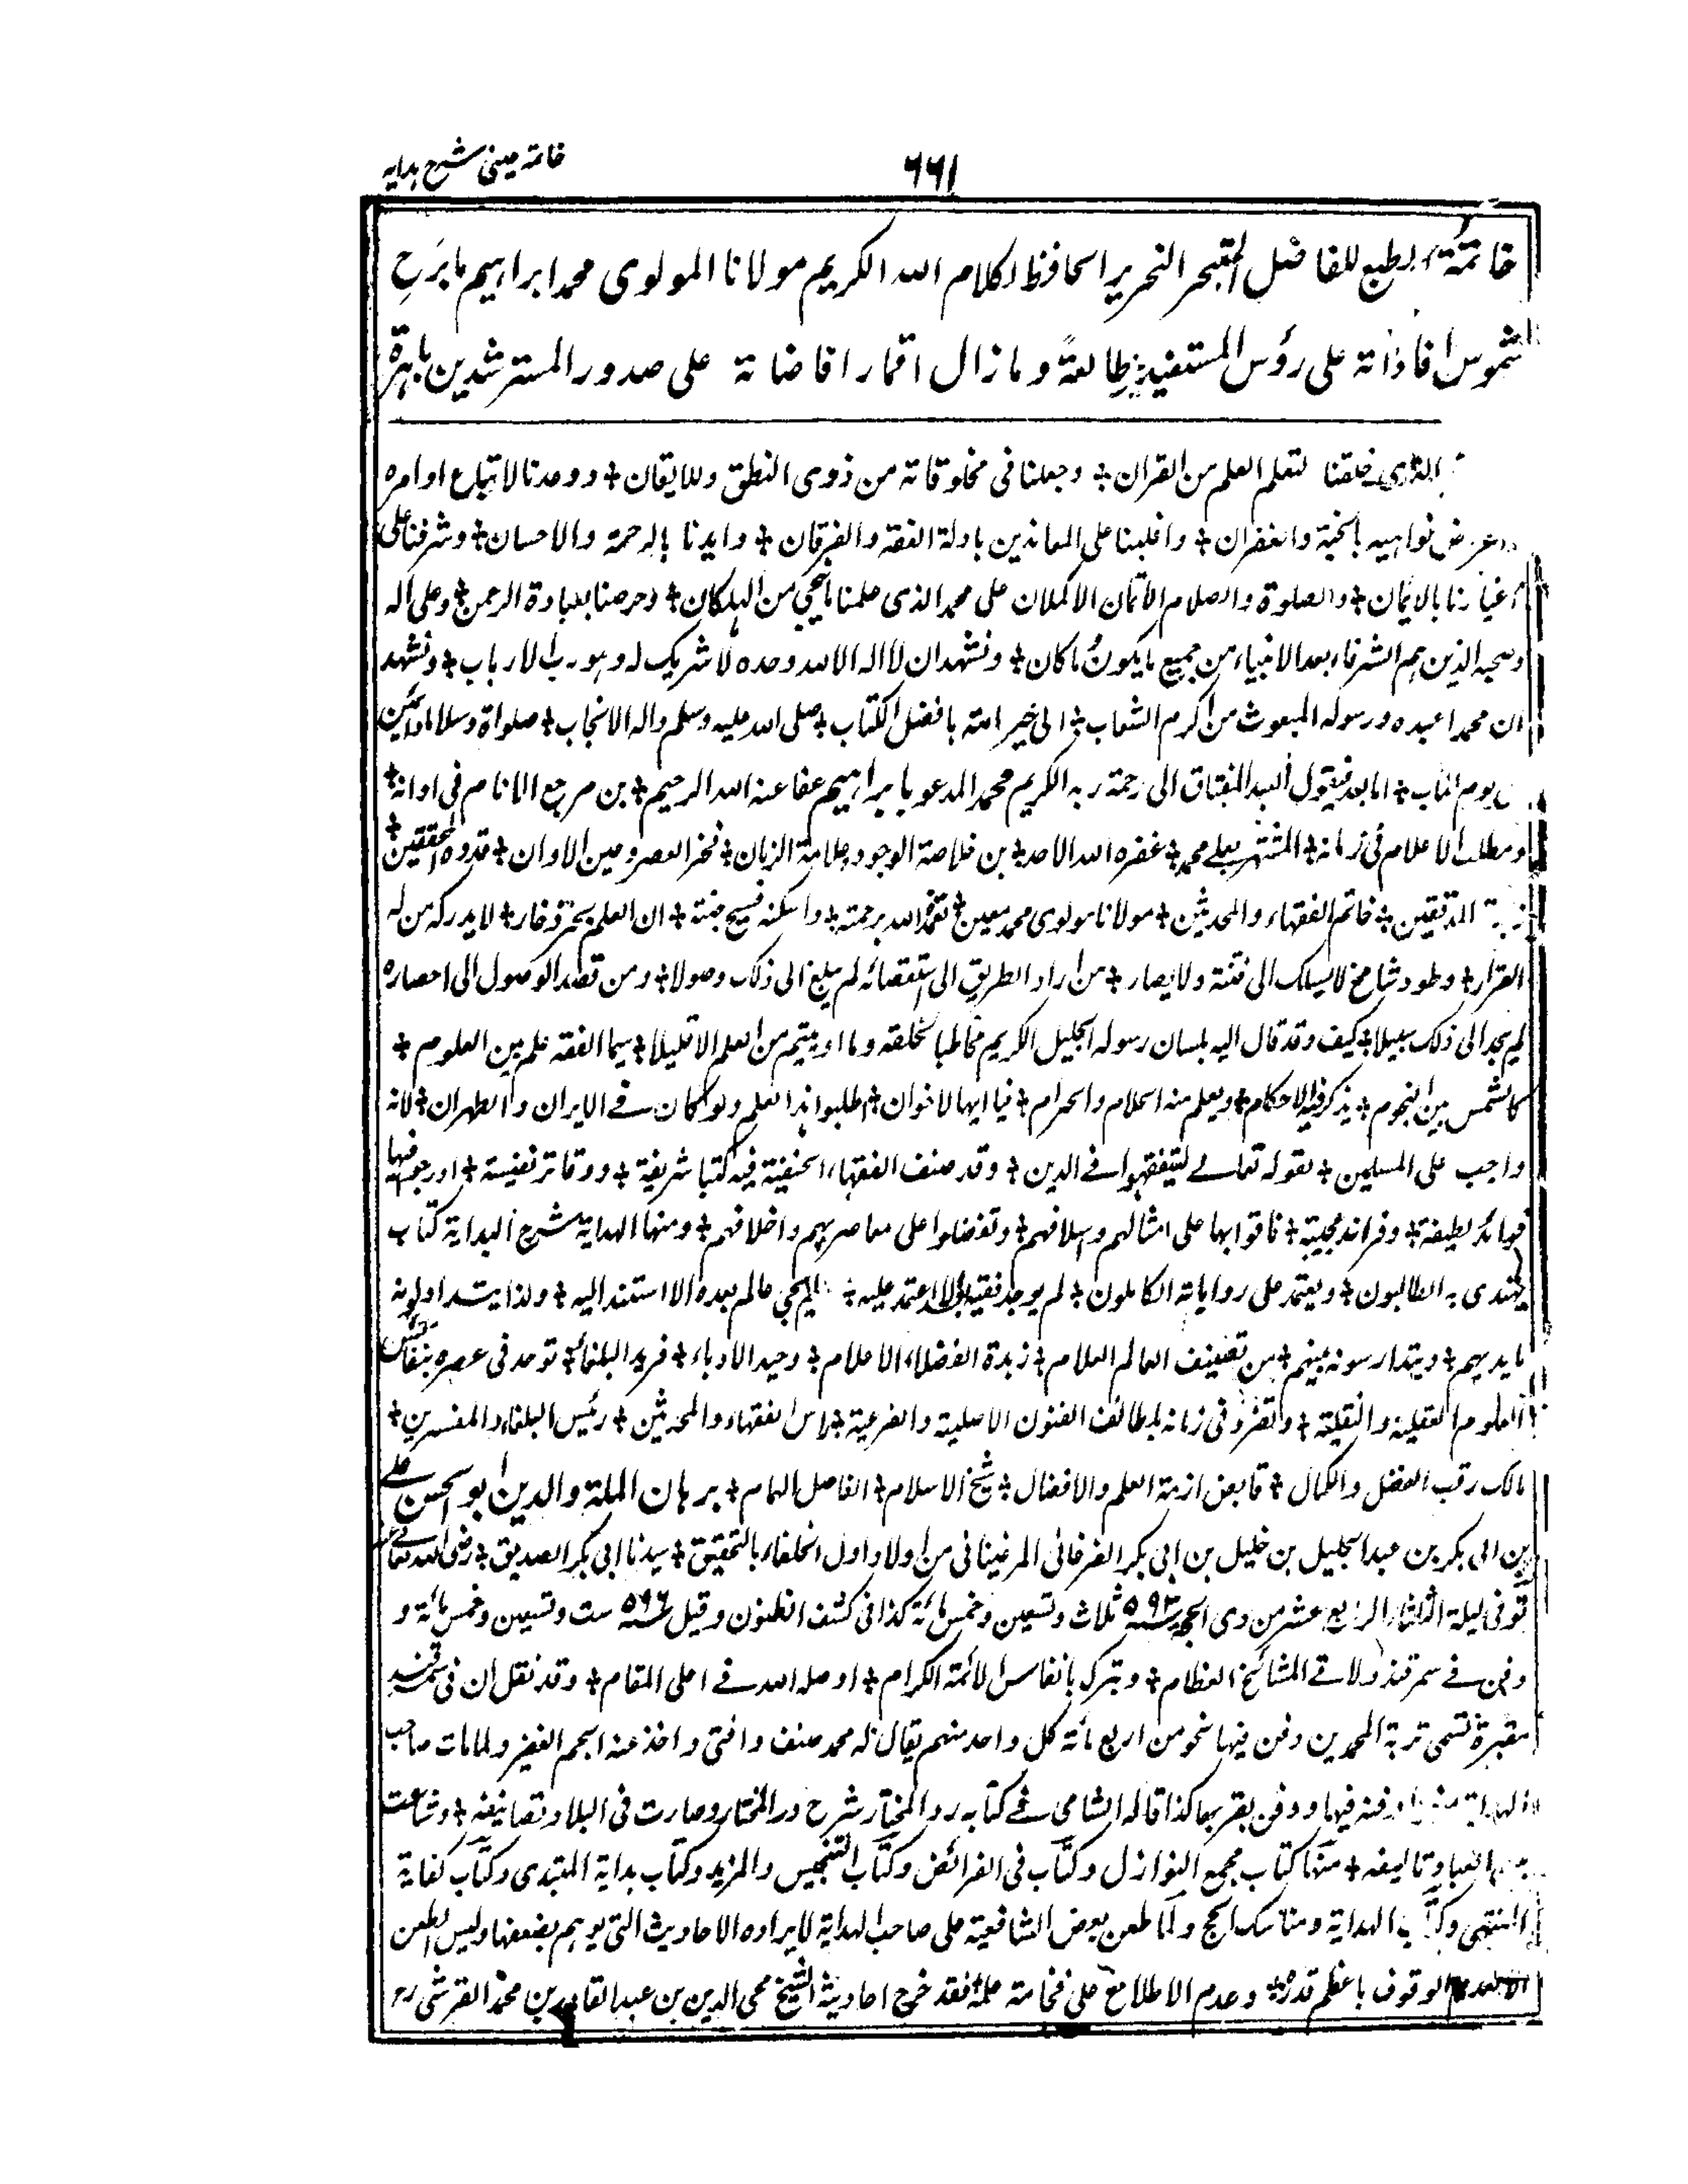 خاتمه عينى شرح هدايه
٦٦١
خاتمة الطبع للفاضل المتبحر النحرير الحافظ لكلام الله الكريم مولانا المولوى محمد ابراهيم ما برَحِ
شموس افاداته على رؤس المستفيدين طالعةً وما زال اقمار افاضاته على صدور المسترشدين باهرة
الذى خلقنا لتعلم العلم من القران + وجعلنا فى مخلوقاته من ذوى النطق وللايقان + ووعدنا لاتباع اوامره
نواهيه بالجنة والغفران + واغلبنا على المعاندين بادلة الفقه والفرقان + وايدنا بالرحمة والاحسان + وشرفنا على
اغيارنا بالايمان + والصلوة والسلام الاتمان الاكملان على محمد الذى علمنا ما ينجى من الهلكان + وحرصنا بعبادة الرحمن + وعلى اله
وصحبه الذين هم الشرفاء بعد الانبياء من جميع ما يكون وما كان + ونشهد ان لا اله الا الله وحده لا شريك له وهو رب الارباب + ونشهد
ان محمدا عبده ورسوله المبعوث من اكرم الشعاب + الى خير امته بافضل الكتاب + صلى الله عليه وسلم واله الانجاب + صلواة وسلاما دائمين
يوم الماب + اما بعد فيقول العبد المشتاق الى رحمة ربه الكريم محمد المدعو بابراهيم عفا عنه الله الرحيم + بن مرجع الانام فى اوانه +
ومطلب الاعلام فى زمانه + المشتهر بعلے محمد + غفره الله الاحد + بن خلاصة الوجود وعلامة الزمان + فخر العصر وعين الاوان + قدوة المحققين +
زبدة المدققين + خاتم الفقهاء والمحدثين + مولانا مولوى محمد معين + تغمده الله برحمته + واسكنه فسيح جنته + ان العلم بحر ذخار + لا يدركه من له
القرار + وطود شامخ لا يسلك الى قنته ولا يصار + من اراد الطريق الى استقصائه لم يبلغ الى ذلك وصولا + ومن قصد الوصول الى احصاره
لم يجد الى ذلك سبيلا + كيف وقد قال اليه بلسان رسوله الجليل الكريم مخاطبا لخلقه وما اوتيتم من العلم الا قليلا + سيما الفقه علم بين العلوم +
كالشمس بين النجوم + يذكر فيه الاحكام + ويعلم منه الحلال والحرام + فيا ايها الاخوان + اطلبوا هذا العلم ولو كان فے الايران والطهران + لانه
واجب على المسلمين + لقوله تعالے ليتفقهوا فے الدين + وقد صنف الفقهاء الحنفية فيه كتبا شريفة + ودفاتر نفيسة + اورجوا فيها
فوائد لطيفة + وفرائد عجيبة + فاقوا بها على امثالهم واسلافهم + وتفضلوا على معاصريهم واخلافهم + ومنها الهداية شرح البداية كتاب
يهتدى به الطالبون + ويعتمد على رواياته الكاملون + لم يوجد فقيه الا اعتمد عليه + ولم يجئ عالم بعده الا استند اليه + ولذا يتداولونه
بايديهم + ويتدارسونه بينهم + من تصنيف العالم العلام + زبدة الفضلاء الاعلام + وحيد الادباء + فريد البلغاء + توحد فى عصره بنفائس
العلوم العقلية والنقلية + وتفرد فى زمانه بلطائف الفنون الاصلية والفرعية + راس الفقهاء والمحدثين + رئيس البلغاء والمفسرين +
مالك رقب الفضل والكمال + قابض ازمة العلم والافضال + شيخ الاسلام + الفاضل الهمام + برهان الملة والدين ابو الحسن علے
بن ابى بكر بن عبد الجليل بن خليل بن ابى بكر الفرغانى المرغينانى من اولاد اول الخلفاء بالتحقيق + سيدنا ابى بكر الصديق + رضى الله تعالے عنه
توفى ليلة الثلثاء الرابع عشر من ذى الحجة سنة ٥٩٣ ثلاث وتسعين وخمس مائة كذا فى كشف الظنون وقيل سنة ٥٩٦ ست وتسعين وخمس مائة و
دفن فے سمرقند ولاقے المشائخ العظام + وتبرك بانفاس الائمة الكرام + اوصله الله فے اعلى المقام + وقد نقل ان فى سمرقند
مقبرة تسمى تربة المحمدين دفن فيها نحو من اربع مائة كل واحد منهم يقال له محمد صنف وافتى واخذ عنه الجم الغفير ولما مات صاحب
الهداية دفنه فيها ودفن بقربها كذا قاله الشامى فے كتابه رد المختار شرح در المختار وصارت فى البلاد تصانيفه + وشاعت
العباد تاليفه + منها كتاب مجمع النوازل وكتاب فى الفرائض وكتاب التنجيس والمزيد وكتاب بداية المبتدى وكتاب كفاية
المنتهى وكتاب الهداية ومناسك الحج ولما طعن بعض الشافعية على صاحب الهداية لايراده الاحاديث التى يوهم بضعفها وليس الطعن
الا لعدم الوقوف باعظم قدره + وعدم الاطلاع على فخامة علمه فقد خرج احاديثه الشيخ محى الدين بن عبد القادر بن محمد القرشى رح